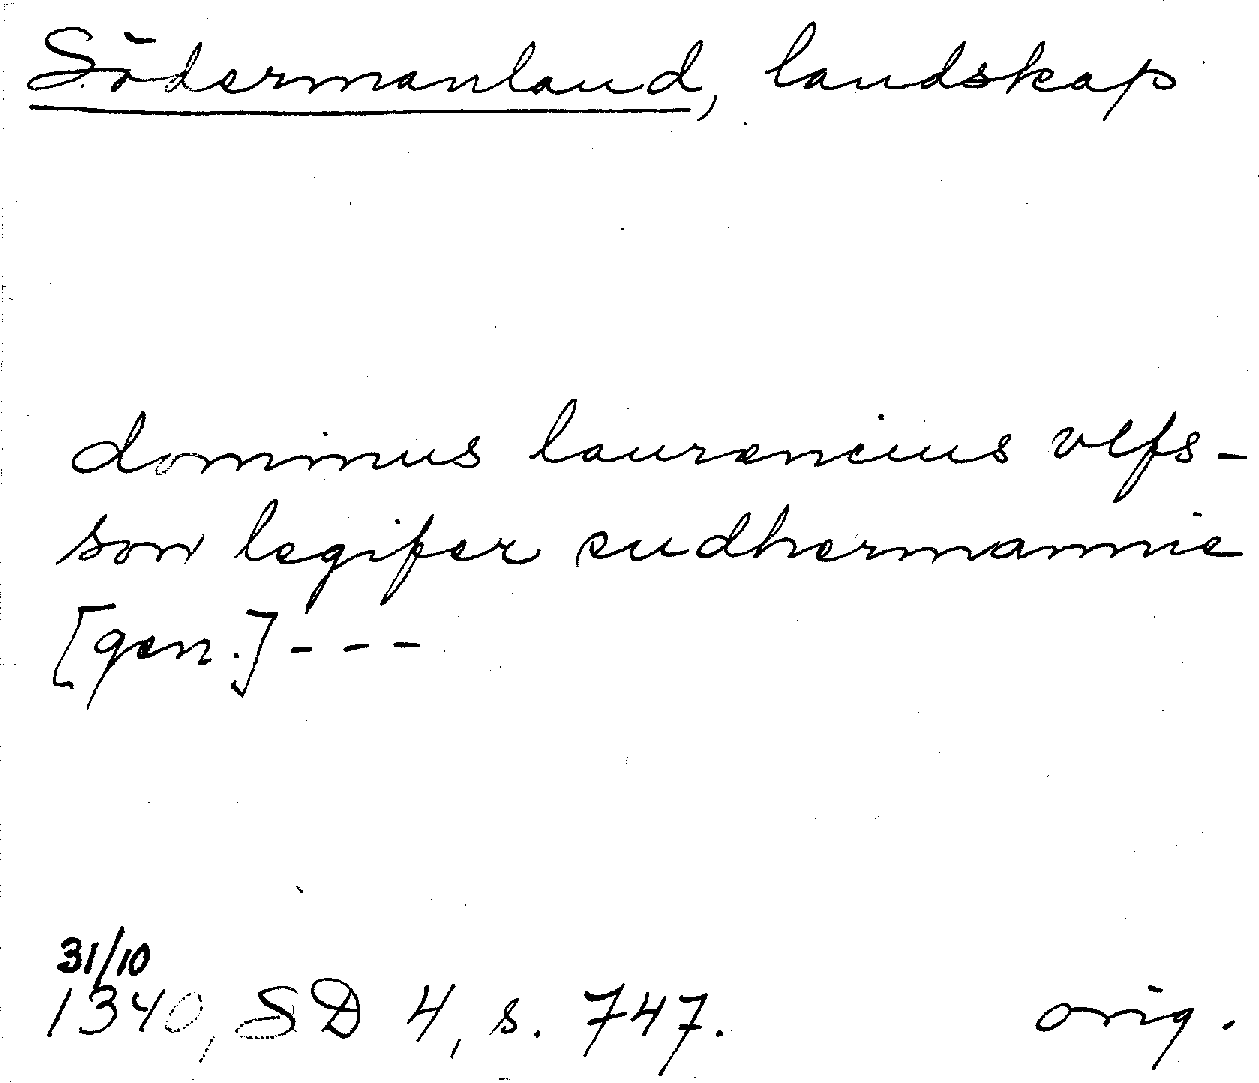 Södermanland, landskap
dominus laurencius vlfs-
son legifer sudhermannie
[gen.]---
31/10
1340, SD 4, s. 747. orig.